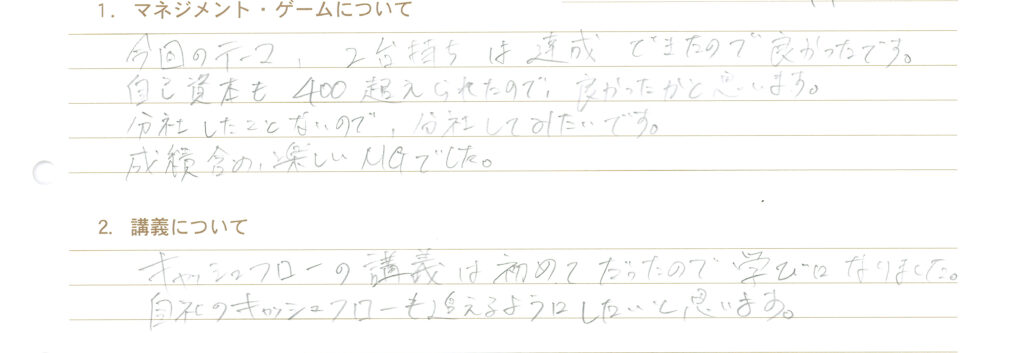 1. マネジメント・ゲームについて
今回のテーマ、2台持ちは達成できたので良かったです。
自己資本も400超えられたので、良かったかと思います。
分社したことないので、分社してみたいです。
成績含め、楽しいMGでした。
2. 講義について
キャッシュフローの講義は初めてだったので学びになりました。
自社のキャッシュフローも追えるようにしたいと思います。